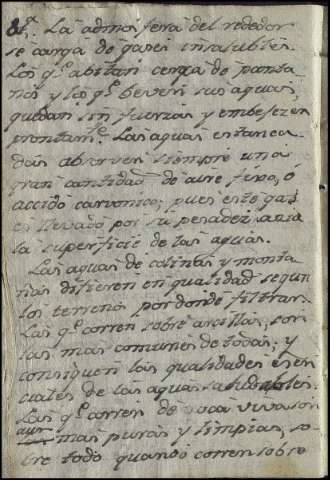 &ª. La admosfera del rededor
se carga de gases insalubles.
Los q.e abitan cerca de panta
nos y los q.e beven sus aguas,
quedan sin fuerzas y embejezen
prontam.te Las aguas estanca-
das absorven siempre una
gran cantidad de aire fixo, ó
accido carvonico; pues este gas
es llevado por su pesadez azia
la superficie de las aguas.
Las aguas de colinas y monta
ñas difieren en qualidad segun
los terrenos por donde filtran.
Las q.e corren sobre arcillas, son
las mas comunes de todas; y
consiguen las qualidades esen
ciales de las aguas saludables.
Las q.e corren de roca viva son
aun mas puras y limpias, so-
bre todo quando corren sobre